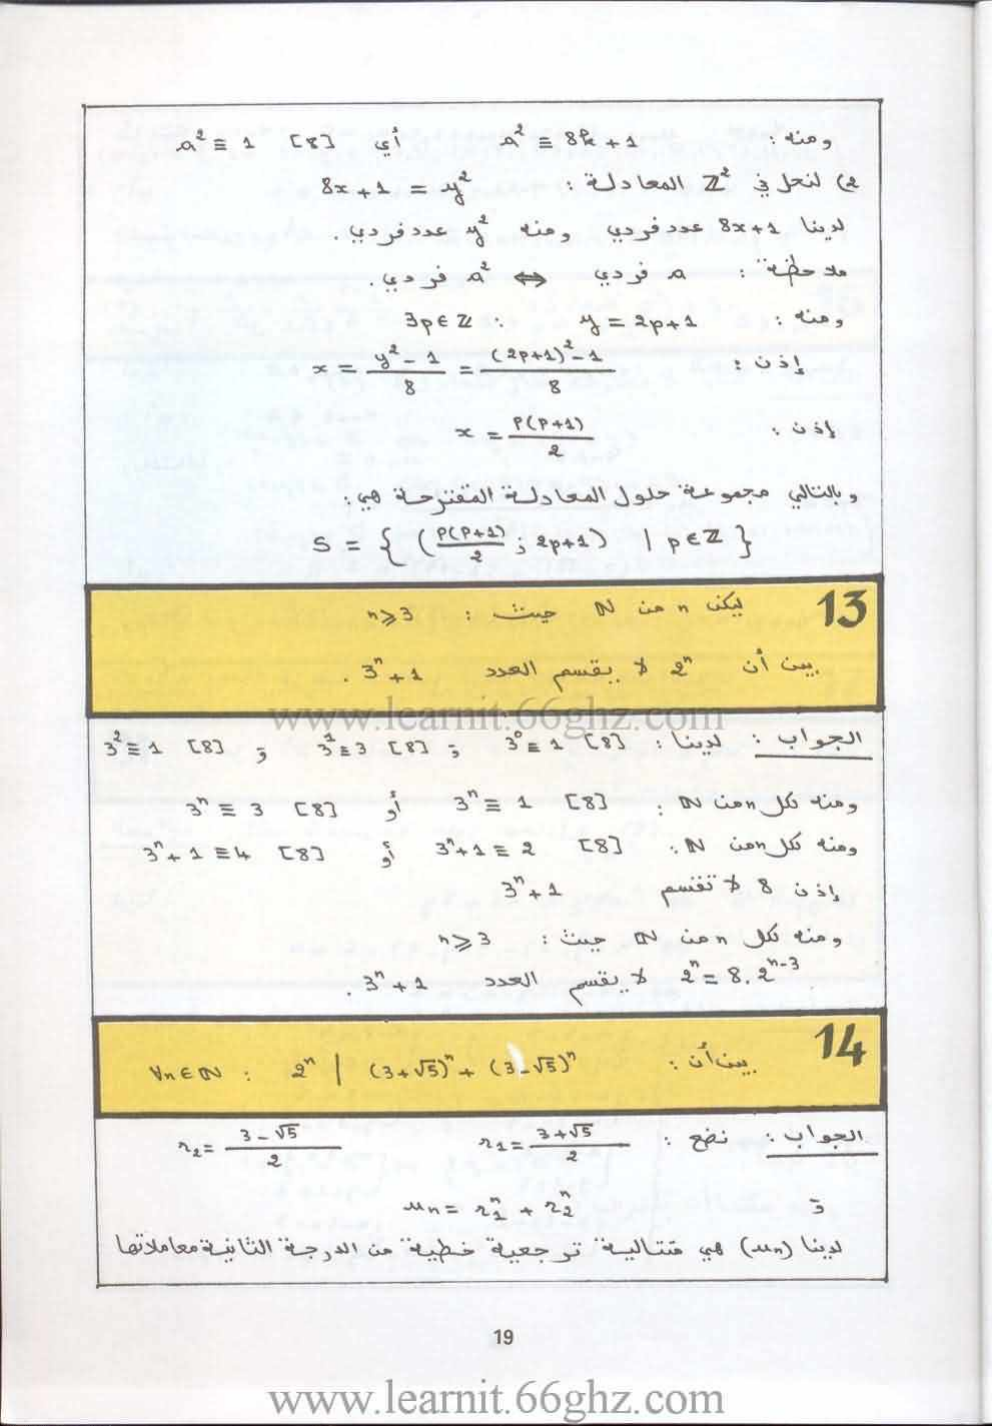 ومنه : a² ≡ 8k + 1 أي a² ≡ 1 [8]
2) لنحل في Z² المعادلة : 8x + 1 = y²
لدينا 8x+1 عدد فردي ومنه y² عدد فردي .
ملاحظة : a فردي ⇔ a² فردي .
ومنه : y = 2p+1 : ∃p∈Z
إذن : x = (y² - 1)/8 = ((2p+1)² - 1)/8
إذن : x = p(p+1)/2
وبالتالي مجموعة حلول المعادلة المقترحة هي :
S = { (p(p+1)/2 ; 2p+1) | p∈Z }
13
ليكن n من N حيث : n⩾3
بين أن 2ⁿ لا يقسم العدد 3ⁿ+1 .
www.learnit.66ghz.com
الجواب : لدينا : 3⁰ ≡ 1 [8] و 3¹ ≡ 3 [8] و 3² ≡ 1 [8]
ومنه لكل n من N : 3ⁿ ≡ 1 [8] أو 3ⁿ ≡ 3 [8]
ومنه لكل n من N : 3ⁿ+1 ≡ 2 [8] أو 3ⁿ+1 ≡ 4 [8]
إذن 8 لا تقسم 3ⁿ+1
ومنه لكل n من N حيث : n⩾3
2ⁿ = 8.2ⁿ⁻³ لا يقسم العدد 3ⁿ+1 .
14
بين أن : ∀n∈N : 2ⁿ | (3+√5)ⁿ + (3-√5)ⁿ
الجواب : نضع : r₁ = (3+√5)/2 r₂ = (3-√5)/2
و uₙ = r₁ⁿ + r₂ⁿ
لدينا (uₙ) هي متتالية ترجعية خطية من الدرجة الثانية معاملاتها
19
www.learnit.66ghz.com